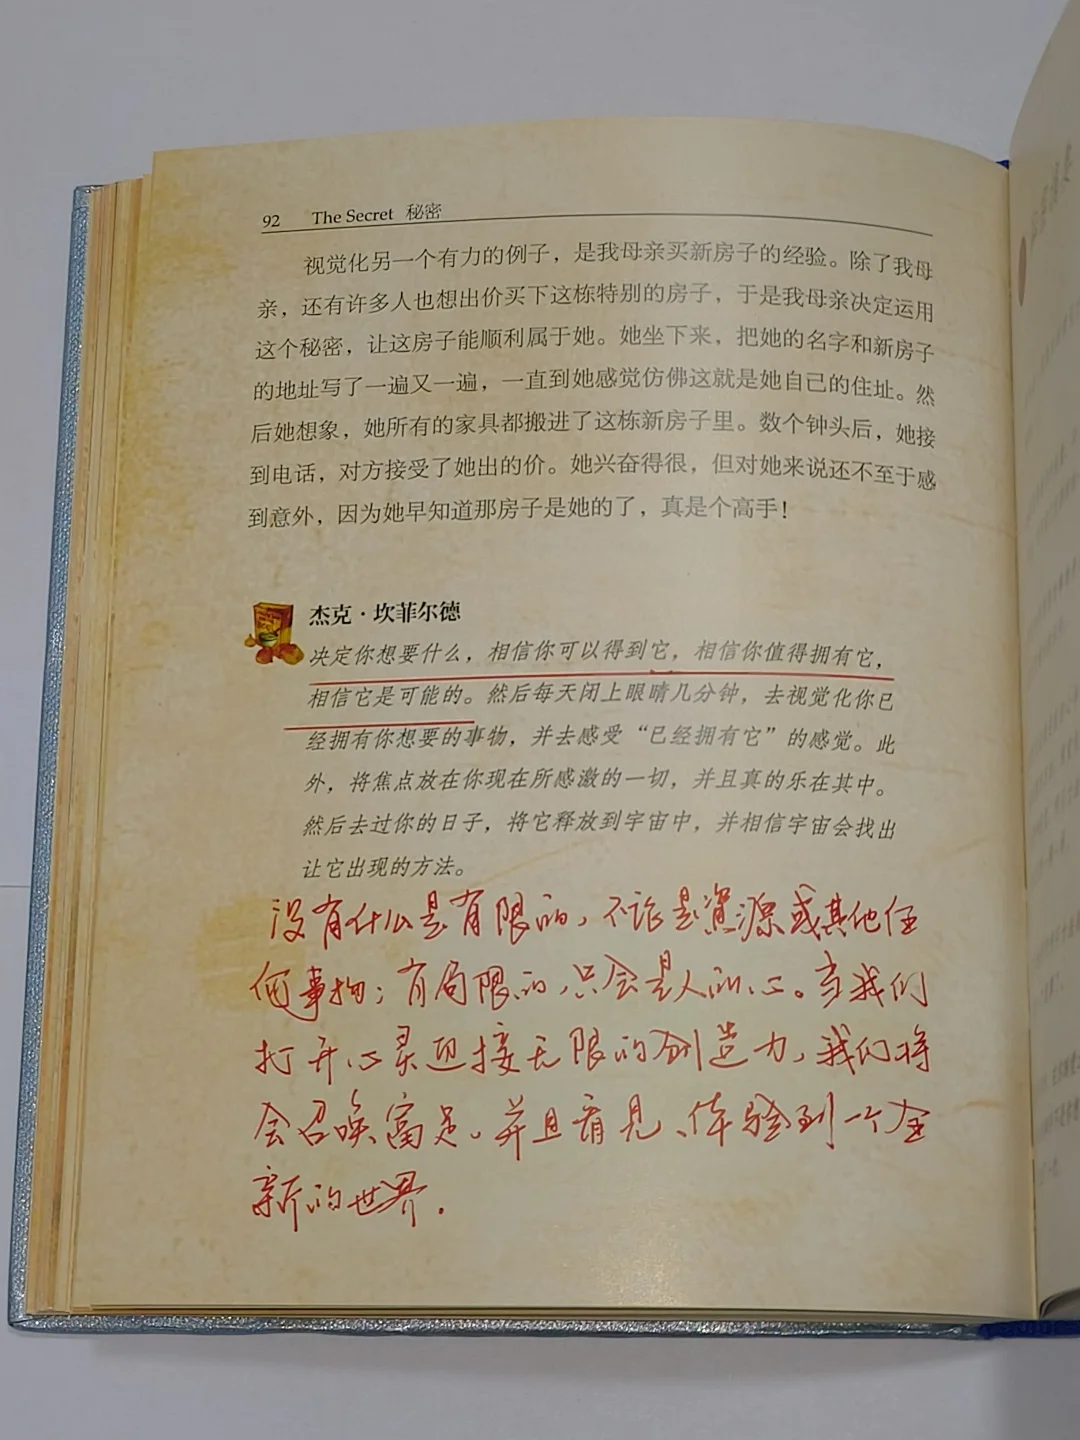 92 The Secret 秘密
视觉化另一个有力的例子，是我母亲买新房子的经验。除了我母
亲，还有许多人也想出价买下这栋特别的房子，于是我母亲决定运用
这个秘密，让这房子能顺利属于她。她坐下来，把她的名字和新房子
的地址写了一遍又一遍，一直到她感觉仿佛这就是她自己的住址。然
后她想象，她所有的家具都搬进了这栋新房子里。数个钟头后，她接
到电话，对方接受了她出的价。她兴奋得很，但对她来说还不至于感
到意外，因为她早知道那房子是她的了，真是个高手！
杰克·坎菲尔德
决定你想要什么，相信你可以得到它，相信你值得拥有它，
相信它是可能的。然后每天闭上眼睛几分钟，去视觉化你已
经拥有你想要的事物，并去感受“已经拥有它”的感觉。此
外，将焦点放在你现在所感激的一切，并且真的乐在其中。
然后去过你的日子，将它释放到宇宙中，并相信宇宙会找出
让它出现的方法。
没有什么是有限的，不论是资源或其他任
何事物；有局限的，只会是人的心。当我们
打开心灵迎接无限的创造力，我们将
会召唤富足。并且看见、体验到一个全
新的世界。